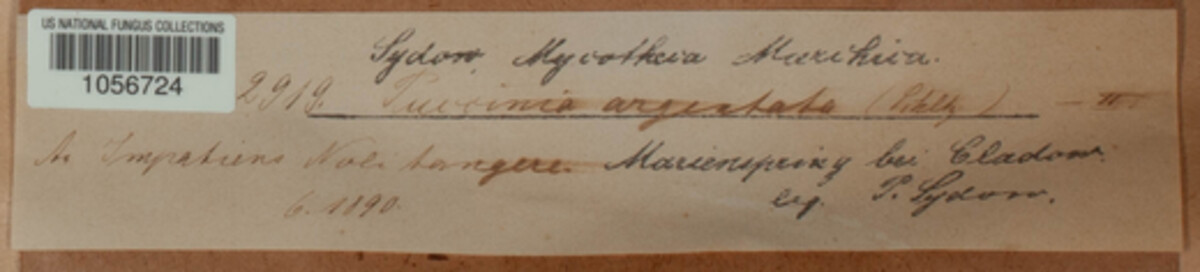 US NATIONAL FUNGUS COLLECTIONS
1056724
Sydow, Mycotheca Marchica.
2919. Puccinia argentata (Schltz) — II.
An Impatiens Noli tangere. Marienspring bei Cladow.
6. 1890. leg. P. Sydow.